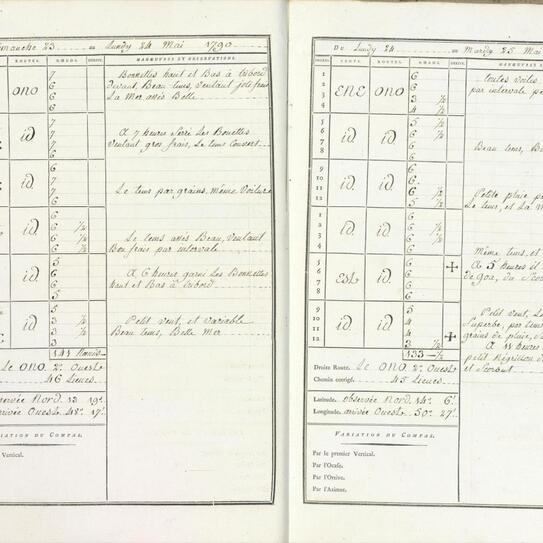 manche 23 au Lundy 24 Mai 1790
ROUTES. NŒUDS. DÉRIVE. MANŒUVRES ET OBSERVATIONS.
7
7
6
6
ONO
Bonnettes haut et Bas à tribord
Devant, Beau tems, ventant joli frais
La Mer assés Belle
7
7
6
6
id
A 7 heures Serré Les Bonettes
Ventant gros frais, Le tems Couvert
6
7
6
6
id.
Le tems par grains, même Voilure
6
6 1/2
6 1/2
6 1/2
id.
Le tems assés Beau, Ventant
Bon frais par intervale
5
6
6
5
id
A 6 heures garni Les Bonnettes
haut et Bas à tribord
5
3 1/2
3 1/2
3
id.
Petit vent, et variable
Beau tems, Belle Mer
141 Nœuds
Le ONO 2° Ouest
46 Lieues
Nord 13 19'
arrivée Ouest 48° 17'
ARIATION DU COMPAS.
Vertical.
Du Lundy 24 au Mardy 25 Mai
ROUTES. NŒUDS. DÉRIVE. MANŒUVRES ET
1
2
3
4
ENE ONO
6
6
3 1/2
4 1/2
toutes voiles
par intervale
5
6
7
8
id id
6
6
6
6 1/2
Beau tems,
9
10
11
12
id. id.
6
6
6 1/2
5 1/2
Petite pluie
Le tems, et La
1
2
3
4
id. id
6
6 1/2
6 1/2
6
Même tems, et
5
6
7
8
EST id
6
6
6
6
A 5 heures il
9
10
11
12
id. id.
5
4
4
3 1/2
Petit vent,
Superbe, par
grains de pluie,
A heures
petit
et
133 1/2
Droite Route. Le ONO 2° Ouest
Chemin corrigé. 45 Lieues
Latitude. observée Nord. 14° 6'
Longitude. arrivée Ouest. 50° 27'
VARIATION DU COMPAS.
Par le premier Vertical.
Par l'Ocase.
Par l'Ortive.
Par l'Azimut.